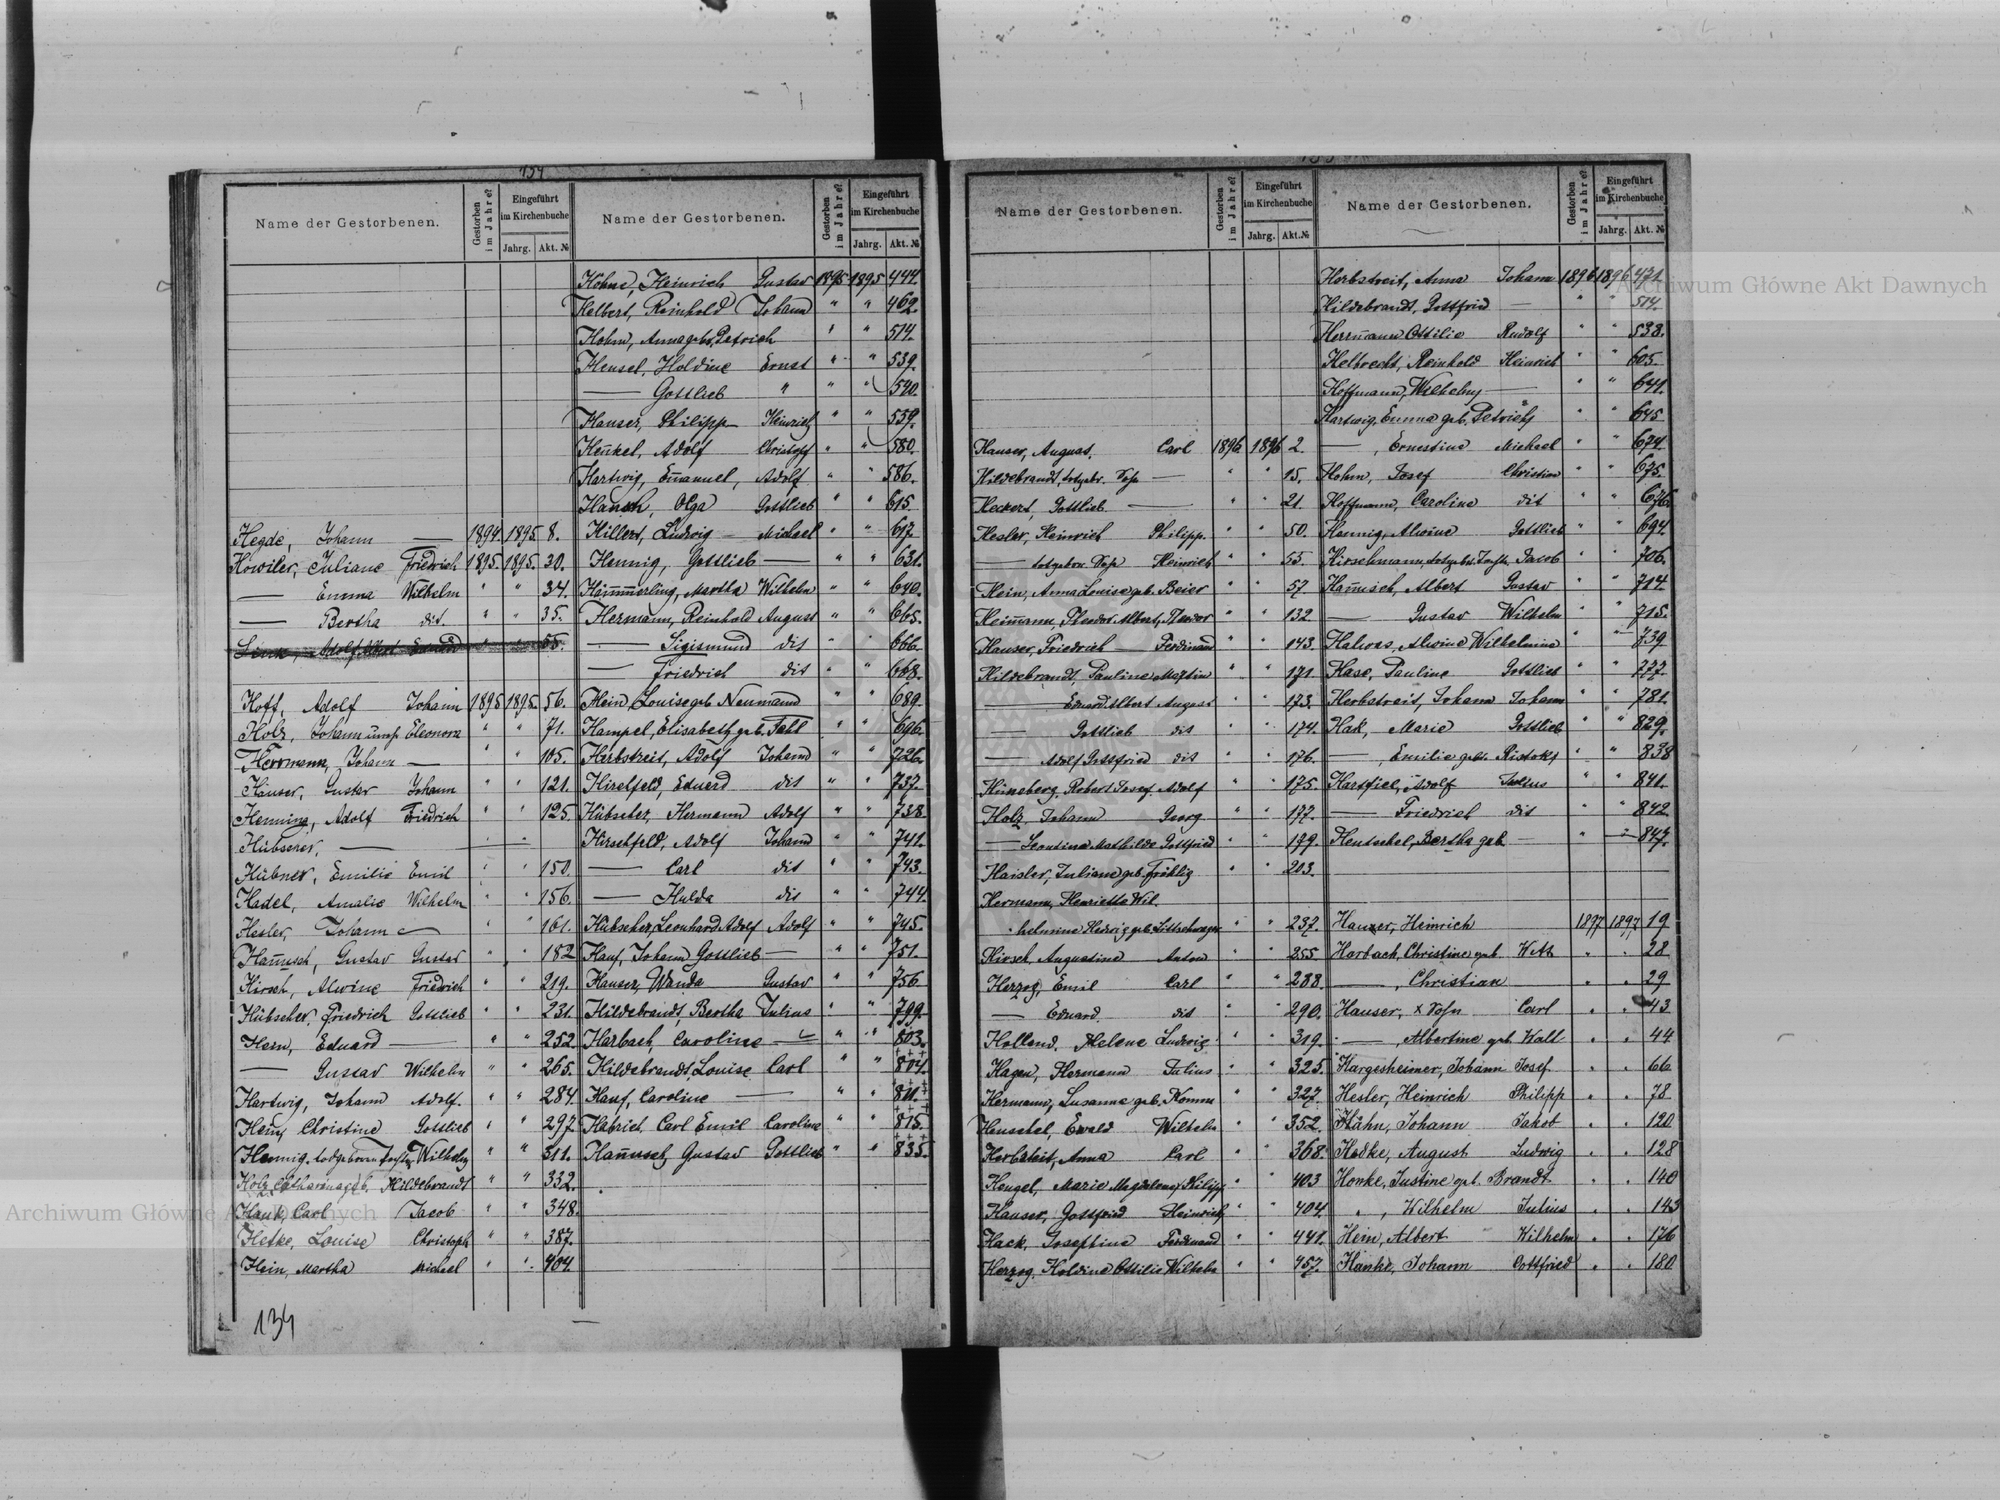 154
Name der Gestorbenen.
Gestorben im Jahre
Eingeführt im Kirchenbuche
Jahrg. Akt. №
Hegde, Johann — 1894. 1895. 8.
Howiler, Juliane Friedrich 1895. 1895. 30.
— Emma Wilhelm " " 34.
— Bertha dit. " " 35.
Hoff, Adolf Johann 1895 1895. 56.
Holz, Johann Eleonora " " 71.
Herrmann, Johann — " " 105.
Häuser, Gustav Johann " " 121.
Henning, Adolf Friedrich " " 125.
Hübscher, —
Hübner, Emilie Emil " " 150.
Hadel, Amalie Wilhelm " " 156.
Hesler, Johann — " " 161.
Hannusch, Gustav Gustav " " 182
Hirsch, Alwine Friedrich " " 219.
Hübscher, Friedrich Gottlieb " " 231.
Hein, Eduard — " " 252.
— Gustav Wilhelm " " 265.
Hartwig, Johann Adolf. " " 284.
Christine Gottlieb " " 297
Hennig, todgeboren Wilhelm " " 311.
Holz Catharina geb. Hildebrandt " " 332.
Hauk, Carl Jacob " " 348.
Hetke, Louise Christoph " " 387.
Hein, Martha Michael " " 404.
134
Name der Gestorbenen.
Gestorben im Jahre
Eingeführt im Kirchenbuche
Jahrg. Akt. №
Höhne, Heinrich Gustav 1895 1895 444.
Helbert, Reinhold Johann " " 469.
Hohm, Anna geb. Petrich " " 514.
Hensel, Holdine Ernst " " 539.
— Gottlieb " " " 540.
Hauser, Philipp Heinrich " " 559.
Henkel, Adolf Christoph " " 580.
Hartwig, Emanuel, Adolf " " 586.
Olga Gottlieb " " 615.
Hillert, Ludwig — Michael " " 617.
Hennig, Gottlieb — " " 631.
Hämmerling, Martha Wilhelm " " 640.
Hermann, Reinhold August " " 665.
— Sigismund dit " " 666.
— Friedrich dit " " 668.
Hein, Louise geb. Neumann " " 689.
Hampel, Elisabeth geb. Fahl " " 696.
Herbstreit, Adolf Johann " " 726.
Hirselfeld, Eduard dit " " 737.
Hübscher, Hermann Adolf " " 738.
Hirschfeld, Adolf Johann " " 741.
— Carl dit " " 743.
— Hulda dit " " 744.
Hübscher, Leonhard Adolf Adolf " " 745.
Hauf, Johann Gottlieb — " " 751.
Hauser, Wanda Gustav " " 756
Hildebrandt, Bertha Julius " " 799.
Harbach, Caroline — " " 803.
Hildebrandt, Louise Carl " " 804.
Hauf, Caroline — " " 811.
Habrich, Carl Emil Caroline " " 815.
Hannusch, Gustav Gottlieb " " 835.
Name der Gestorbenen.
Gestorben im Jahre
Eingeführt im Kirchenbuche
Jahrg. Akt.№
Hauser, August. Carl 1896. 1896 2.
Hildebrandt, — " " 15.
Heckert, Gottlieb — " " 21.
Hesler, Heinrich Philipp. " " 50.
— Heinrich " " 55.
Hein, Anna Louise geb. Beier " " 57.
Heimann, Theodor Albert, Theodor " " 132.
Hauser, Friedrich Ferdinand " " 143.
Hildebrandt, Pauline Martin " " 171.
— Eduard Albert August " " 173.
— Gottlieb dit " " 174.
— Adolf Gottfried dit " " 176.
Hüneberg, Robert Josef Adolf " " 175.
Holz, Johann Georg " " 177.
— Leontine Mathilde Gottfried " " 179.
Haisler, Juliane geb. Fröhlig " " 203.
Hermann, Henriette Wil-
helmine Hedwig geb. " " 237.
Hirsch, Augustine Anton " " 255
Herzog, Emil Carl " " 288.
— Eduard dit " " 290.
Holland, Helene Ludwig " " 319.
Hagen, Hermann Julius " " 325.
Hermann, Susanna geb. " " 327.
Henschel, Ewald Wilhelm " " 352.
Anna Carl " " 368.
Hengel, Marie Magdalena Philipp " " 403
Hauser, Gottfried Heinrich " " 404.
Hack, Josephine Ferdinand " " 441.
Herzog, Holdine Ottilie Wilhelm " " 457.
Name der Gestorbenen.
Gestorben im Jahre
Eingeführt im Kirchenbuche
Jahrg. Akt.№
Herbstreit, Anna Johann 1896 1896 431
Hildebrandt, Gottfried — " " 514.
Herrmann Ottilie Rudolf " " 538.
Helbrecht, Reinhold Heinrich " " 605.
Hoffmann, Wilhelm — " " 641.
Hartwig, Emma geb. Petrich " " 645
—, Ernestine Michael " " 674.
Hohm, Josef Christian " " 675.
Hoffmann, Caroline dit " " 676.
Hennig, Alwine Gottlieb " " 694.
Hirschmann, Jacob " " 706.
Hannusch, Albert Gustav " " 714.
— Gustav Wilhelm " " 715.
Alwine Wilhelmine " " 739
Hase, Pauline Gottlieb " " 777.
Herbstreit, Johann Johann " " 781.
Hak, Marie Gottlieb " " 829.
—, Emilie geb. " " 838
Adolf Julius " " 841.
— Friedrich dit " " 842
Hentschel, Bertha geb. — " " 847.
Hauzer, Heinrich 1897 1897 19
Harbach, Christine geb. " " 28
—, Christian " " 29
Hauser, × Sohn Carl " " 43
—, Albertine geb. Walt " " 44
Hargesheimer, Johann Josef " " 66
Hesler, Heinrich Philipp " " 78
Hähn, Johann Jakob " " 120
Hadke, August Ludwig " " 128
Honke, Justine geb. Brandt " " 140
" , Wilhelm Julius " " 143
Hein, Albert Wilhelm " " 176
Hanke, Johann Gottfried " " 180
Archiwum Główne Akt Dawnych
Archiwum Główne Akt Dawnych